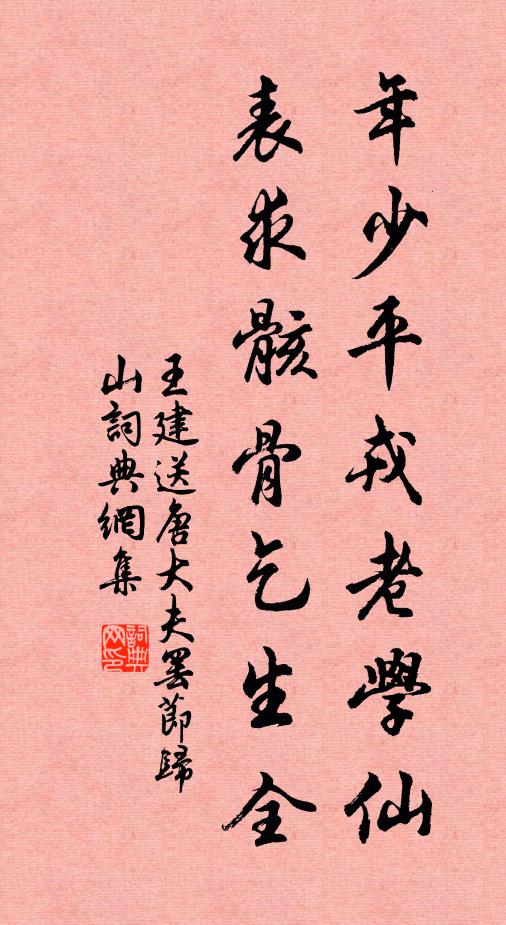 年少平戎老學仙
表求骸骨乞生全
王建送唐大夫罷節歸
山詞典網集
詞典
网印